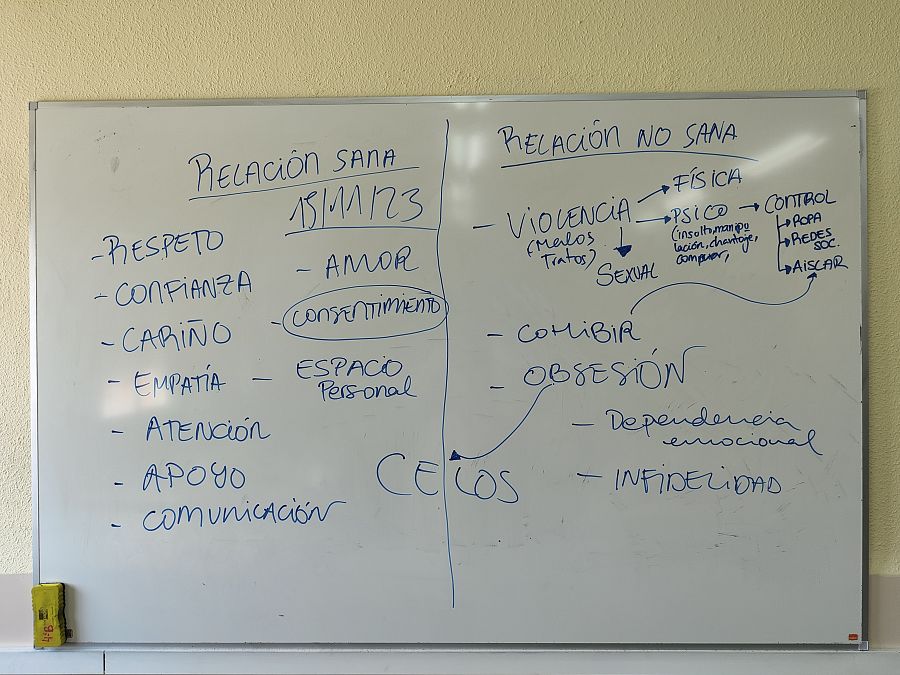 RELACIÓN SANA
15/11/23
- RESPETO
- CONFIANZA
- CARIÑO
- EMPATÍA
- ATENCIÓN
- APOYO
- COMUNICACIÓN
- AMOR
- CONSENTIMIENTO
- ESPACIO
Personal
CELOS
RELACIÓN NO SANA
- VIOLENCIA
(Malos
Tratos)
FÍSICA
PSICO
(insulto, manipu
lación, chantaje,
comparar,
SEXUAL
CONTROL
ROPA
REDES
SOC.
AISLAR
- COHIBIR
- OBSESIÓN
- Dependencia
emocional
- INFIDELIDAD
4ºB